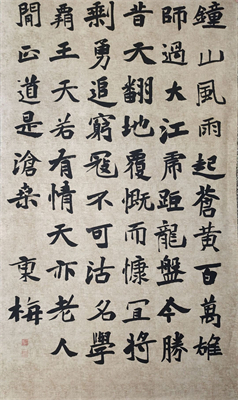 鐘山風雨起蒼黃百萬雄
師過大江虎距龍盤今勝
昔天翻地覆慨而慷宜將
剩勇追窮寇不可沽名學
霸王天若有情天亦老人
間正道是滄桑 東梅